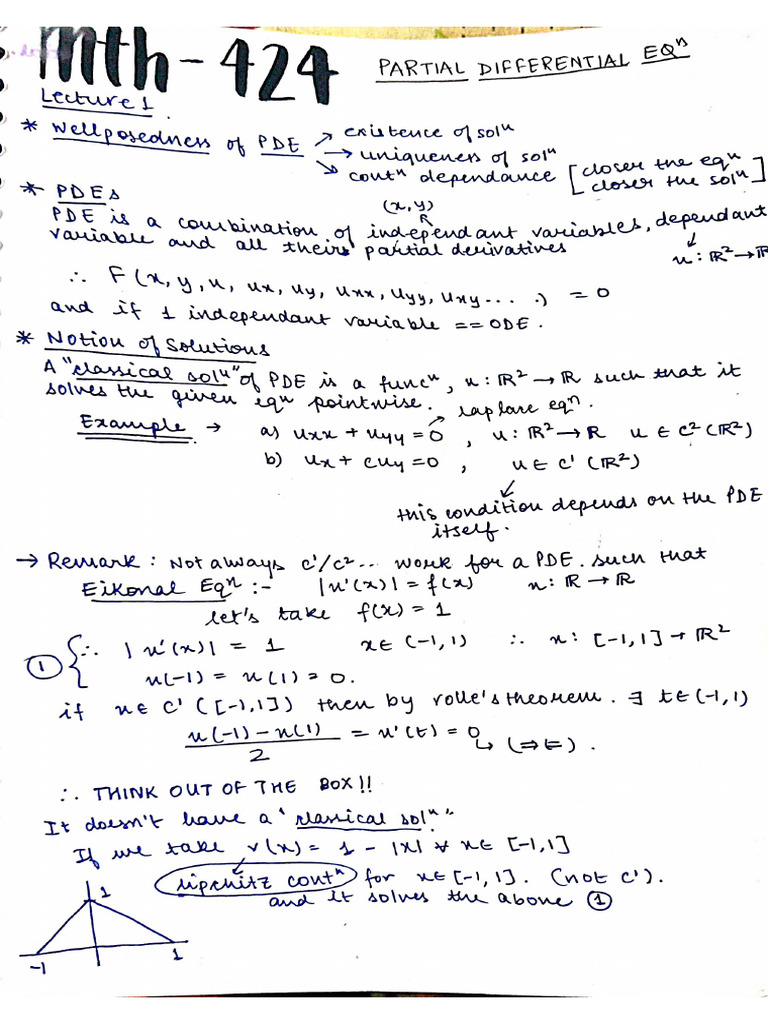 Mth-424 PARTIAL DIFFERENTIAL EQⁿ
Lecture 1
* Wellposedness of PDE ↗ existence of solⁿ
→ uniqueness of solⁿ
↘ contⁿ dependance [closer the eqⁿ
closer the solⁿ]
* PDEs
(x,y)
PDE is a combination of independant variables, dependant
variable and all theirs partial derivatives
u: ℝ² → ℝ
∴ F(x, y, u, ux, uy, uxx, uyy, uxy ....) = 0
and if 1 independant variable == ODE.
* Notion of Solutions
A "classical solⁿ" of PDE is a funcⁿ, u: ℝ² → ℝ such that it
solves the given eqⁿ pointwise.
laplace eqⁿ.
Example → a) uxx + uyy = 0, u: ℝ² → ℝ u ∈ C² (ℝ²)
b) ux + cuy = 0, u ∈ C' (ℝ²)
this condition depends on the PDE
itself.
→ Remark: Not always c'/c² .. work for a PDE. such that
Eikonal Eqⁿ :- |u'(x)| = f(x) u: ℝ → ℝ
let's take f(x) = 1
① { ∴ |u'(x)| = 1 x ∈ (-1,1) ∴ u: [-1,1] → ℝ²
u(-1) = u(1) = 0.
if u ∈ C' ([-1,1]) then by rolle's theorem. ∃ t ∈ (-1,1)
u(-1) - u(1) / 2 = u'(t) = 0
↳ (⇒⇐).
∴ THINK OUT OF THE BOX!!
It doesn't have a "classical solⁿ"
If we take v(x) = 1 - |x| ∀ x ∈ [-1,1]
lipchitz contⁿ for x ∈ [-1,1]. (not c').
and it solves the above ①
1
-1 1